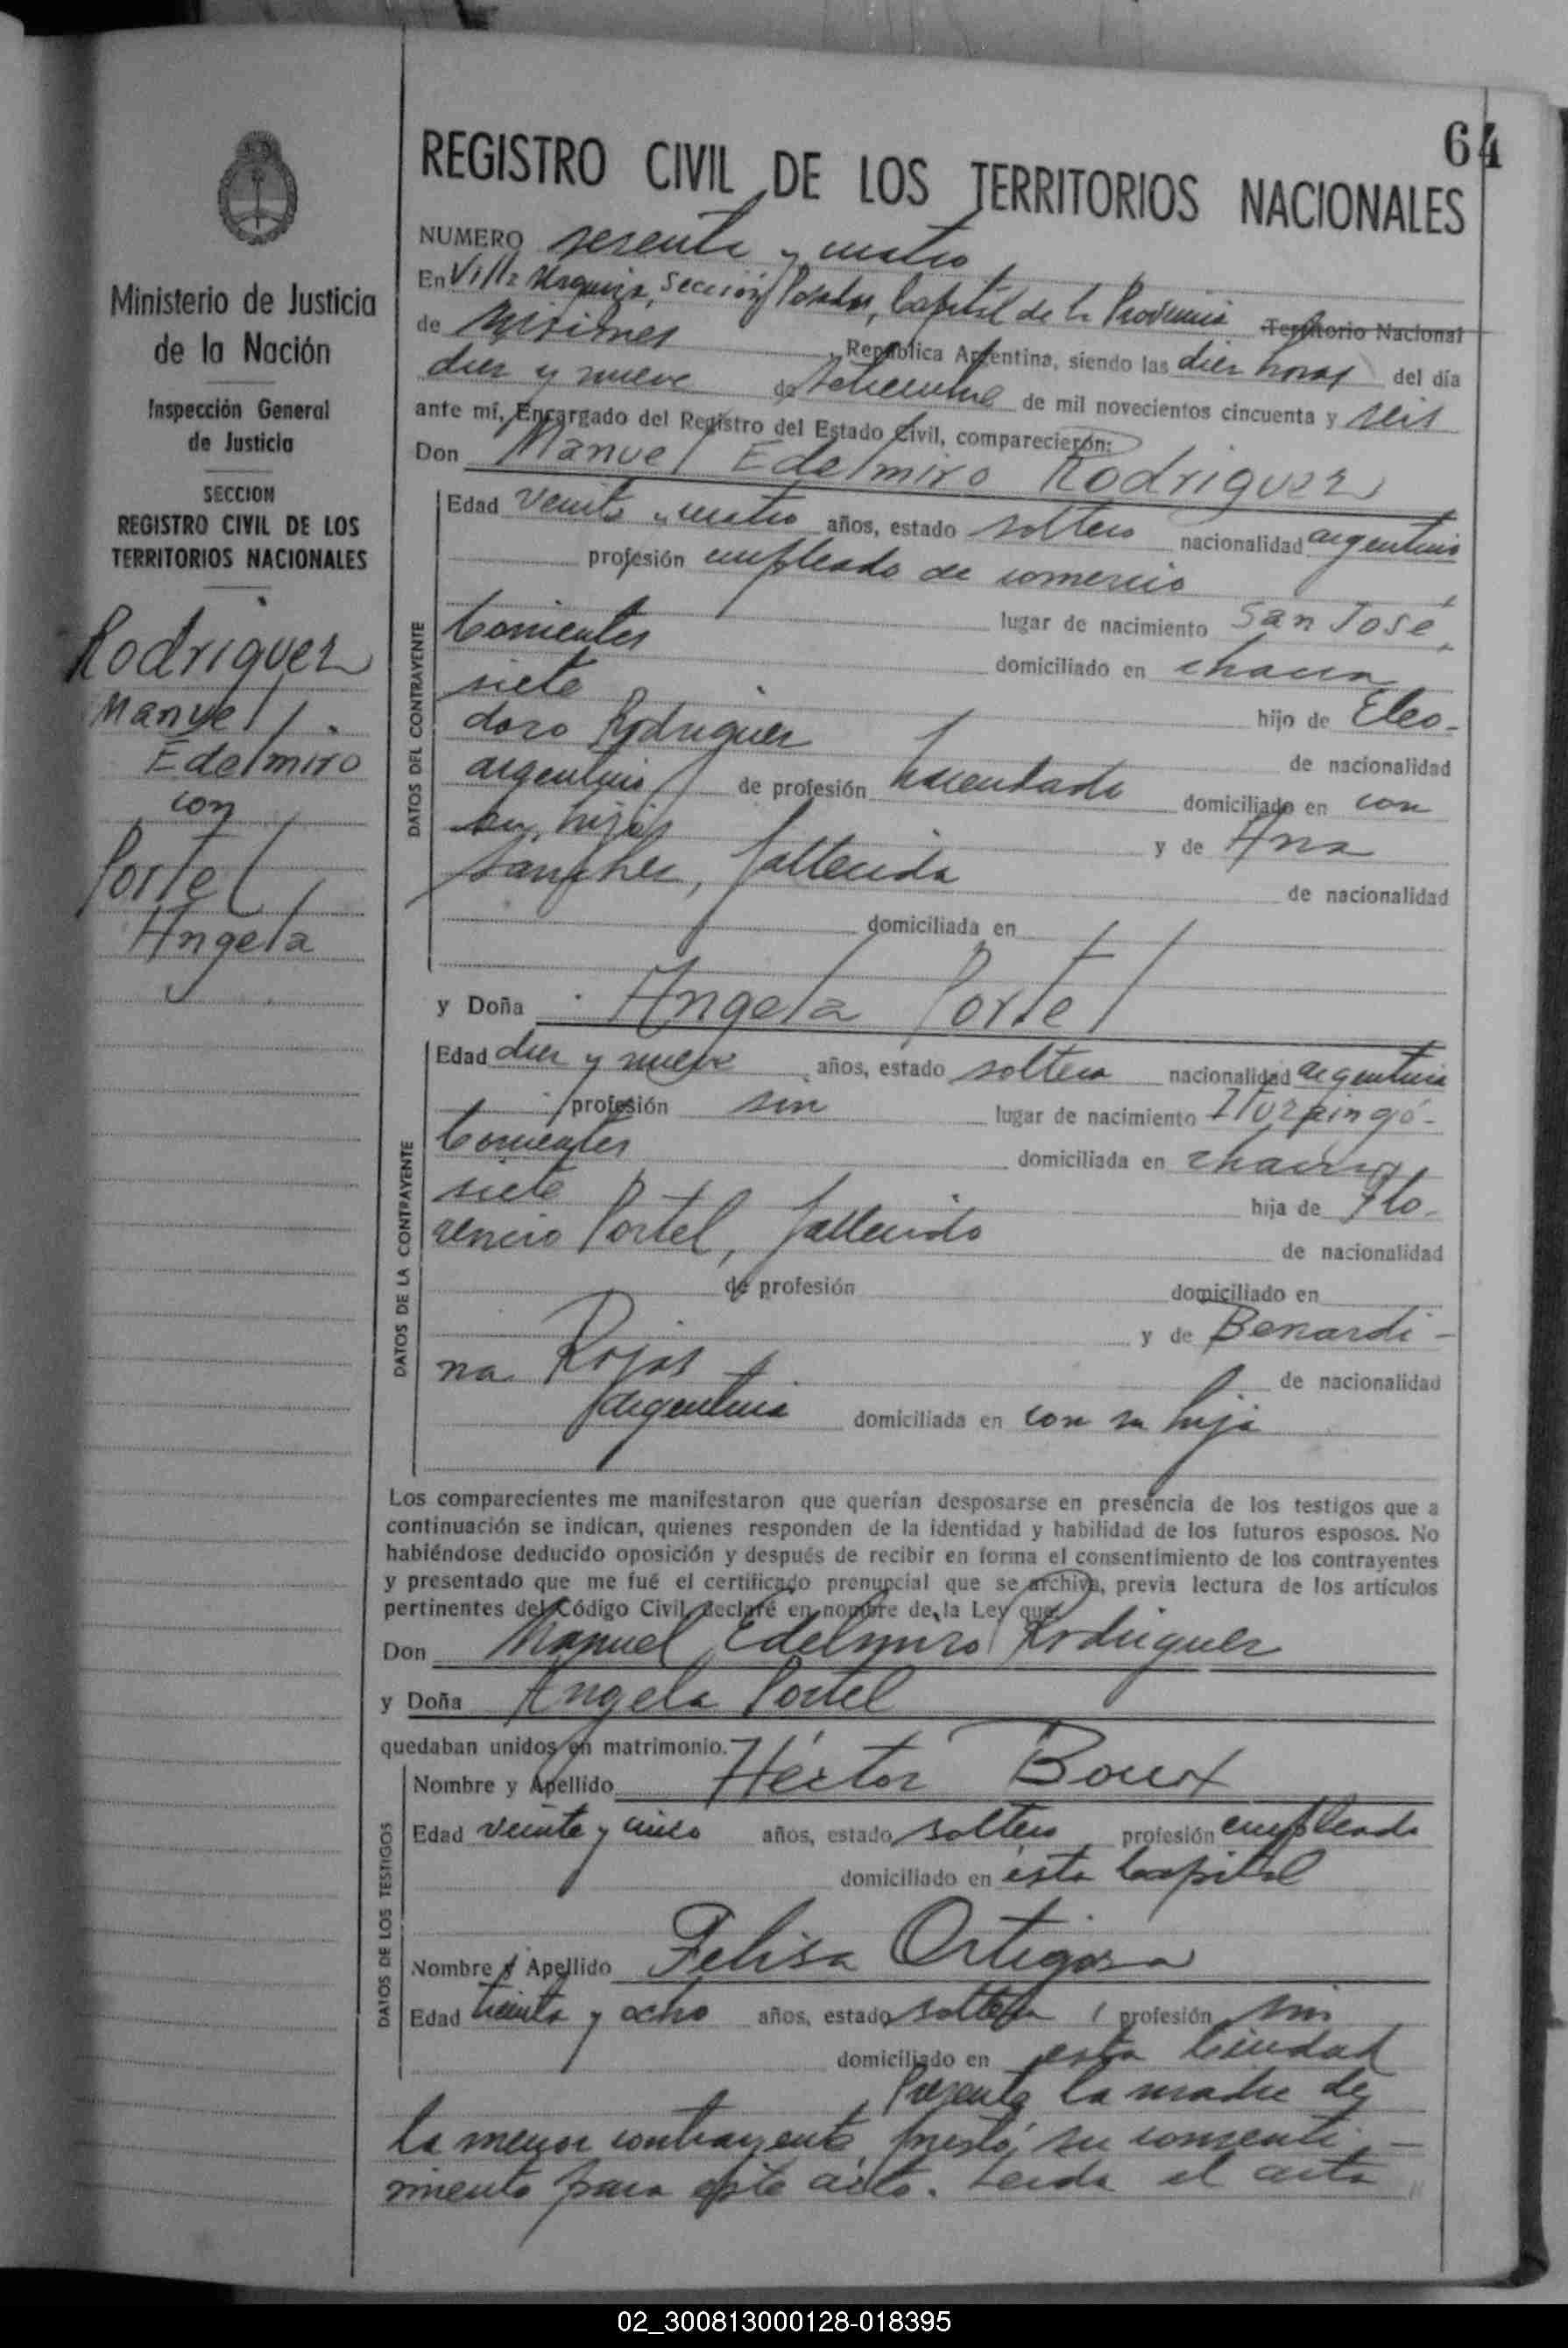 64
REGISTRO CIVIL DE LOS TERRITORIOS NACIONALES
Ministerio de Justicia
de la Nación
Inspección General
de Justicia
SECCION
REGISTRO CIVIL DE LOS
TERRITORIOS NACIONALES
Rodriguez
Manuel
Edelmiro
con
Portel
Angela
NUMERO sesenta y cuatro
En Villa Urquiza, Sección Posadas, Capital de la Provincia Territorio Nacional
de Misiones República Argentina, siendo las diez horas del día
diez y nueve de de mil novecientos cincuenta y seis
ante mí, Encargado del Registro del Estado Civil, comparecieron:
Don Manuel Edelmiro Rodriguez
DATOS DEL CONTRAYENTE
Edad veinte y cuatro años, estado soltero nacionalidad argentino
profesión empleado de comercio
lugar de nacimiento San José,
Corrientes
domiciliado en chacra
siete
hijo de Eleo-
doro Rodriguez
de nacionalidad
argentino de profesión hacendado domiciliado en con
su hijo
y de Ana
Sanchez, fallecida
de nacionalidad
domiciliada en
y Doña Angela Portel
DATOS DE LA CONTRAYENTE
Edad diez y nueve años, estado soltera nacionalidad argentina
profesión sin lugar de nacimiento Ituzaingó-
Corrientes
domiciliada en chacra
siete
hija de Flo-
rencio Portel, fallecido
de nacionalidad
de profesión domiciliado en
y de Benardi-
na Rojas
de nacionalidad
argentina domiciliada en con su hija
Los comparecientes me manifestaron que querían desposarse en presencia de los testigos que a
continuación se indican, quienes responden de la identidad y habilidad de los futuros esposos. No
habiéndose deducido oposición y después de recibir en forma el consentimiento de los contrayentes
y presentado que me fué el certificado prenupcial que se archiva, previa lectura de los artículos
pertinentes del Código Civil, declaré en nombre de la Ley que:
Don Manuel Edelmiro Rodriguez
y Doña Angela Portel
quedaban unidos en matrimonio.
DATOS DE LOS TESTIGOS
Nombre y Apellido Héctor
Edad veinte y cinco años, estado soltero profesión empleado
domiciliado en esta Capital
Nombre y Apellido Felisa Ortigoza
Edad treinta y ocho años, estado soltera profesión sin
domiciliado en esta Ciudad
Presente la madre de
la menor contrayente prestó su consenti-
miento para este acto. Leida el acta
02_300813000128-018395